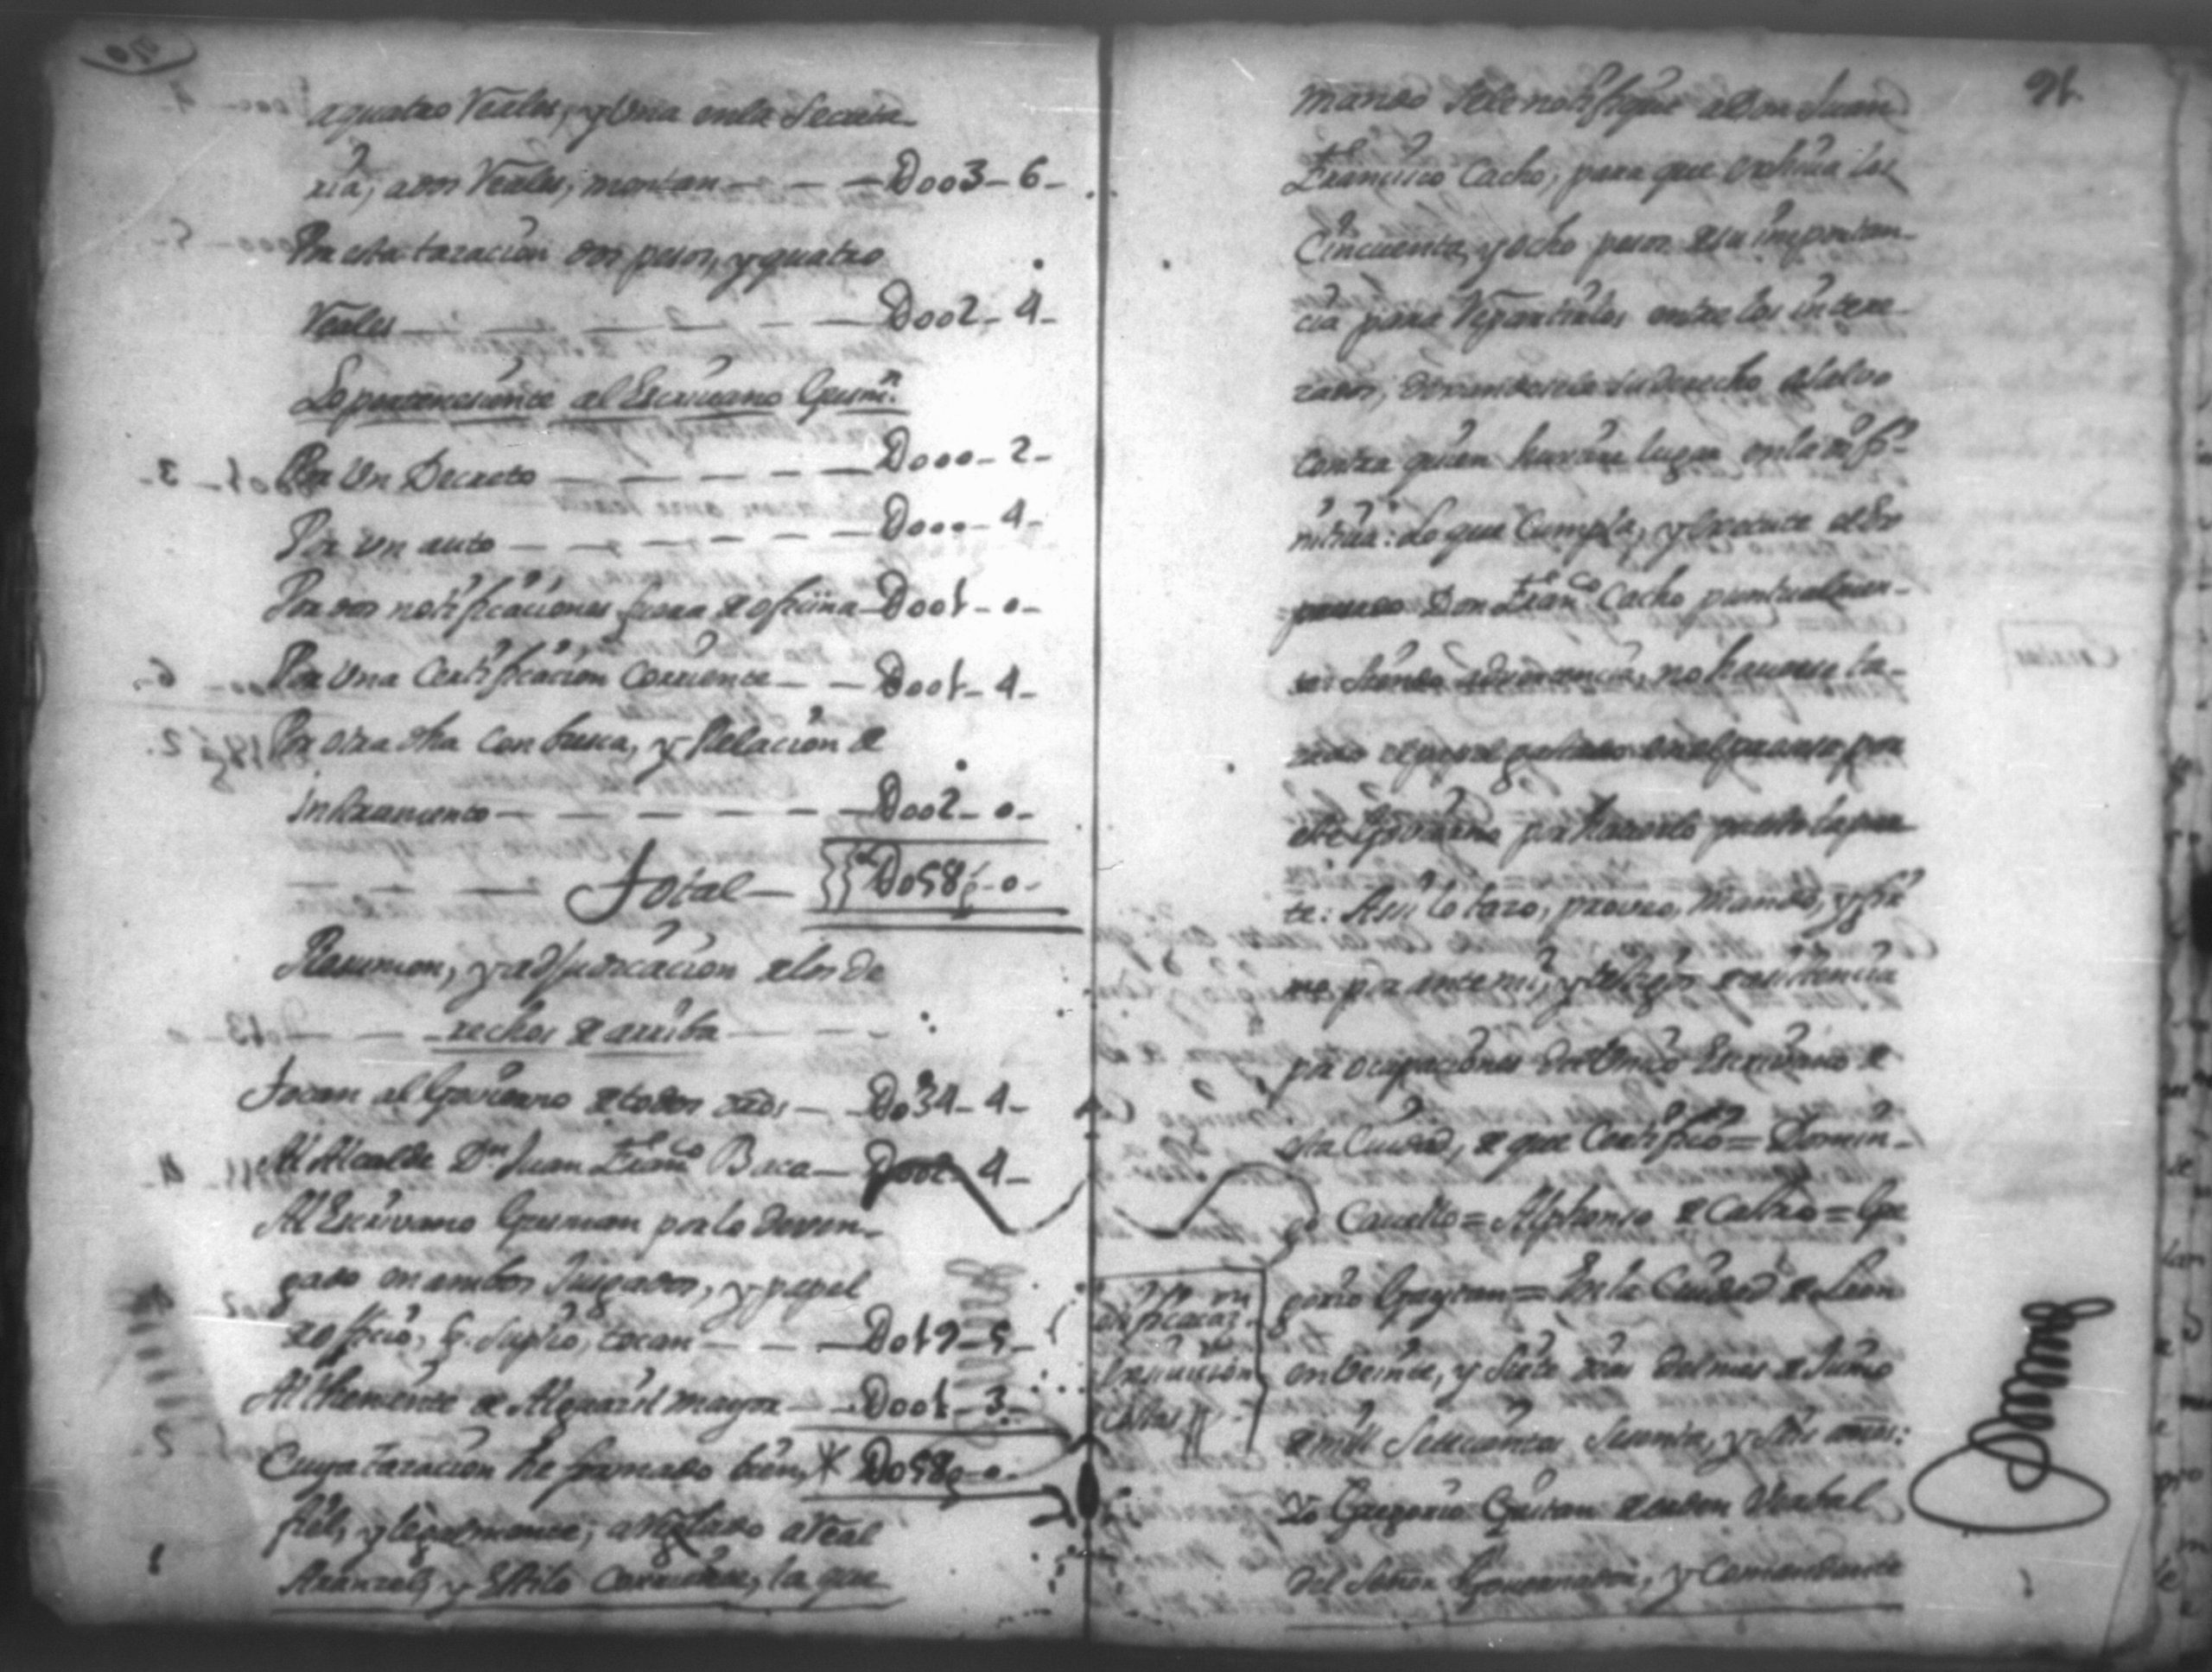 aquatro Reales, y Una en la Secreta-
ria, a dos Reales, montan — — — D003-6-
Por esta tazacion dos pesos, y quatro
Reales — — — — — — — D002-4-
Lo perteneciente al Escrivano Gusmn.
Por Un Decreto — — — — — D000-2-
Por un auto — — — — — — D000-4-
Por dos notificaciones fuera de oficina — D001-0-
Por Una Certificacion Corriente — — D001-4-
Por otra dha con busca, y Relacion de
instrumento — — — — — — D002-0-
— — — Total — D058p-0-
Resumen, y adjudicacion de los de
rechos de arriba
Tocan al Govierno de todos dros — — D034-4-
Al Alcalde Dn Juan Franco Baca — D002-4-
Al Escrivano Gusman por lo deven-
gado en ambos Jusgados, y papel
de oficio, q. suplio, tocan — — — D019-5-
Al theniente de Alguazil mayor — — D001-3-
Cuya tazacion he formado bien, * D058p-0-
fiel, y legalmente, arreglado a Real
Aranzel, y Estilo Corriente, la que
91.
mando se le notifique a Don Juan
Francisco Cacho, para que exhiva los
Cincuenta, y ocho pesos de su importan-
cia para repartirlos entre los intere-
zados, dexandosele su derecho a salvo
contra quien huviere lugar en la difi-
nitiva: Lo que Cumpla, y execute el Ex
presado Don Franco Cacho puntualmen-
te: siendo advertencia, no haverse ta-
zado el papel gastado en el proceso por
este Govierno por hacerlo puesto la par
te: Assi lo tazo, proveo, mando, y fir
mo por ante mi, y testigos de asistencia
por ocupaciones del Unico Escrivano de
esta Ciudad, de que Certifico = Domin-
go Cavello = Alphonso de Castro = Gre
gorio Gaytan = En la Ciudad de Leon
en Veinte, y Siete dias del mes de Junio
de mil Setecientos Sesenta, y Seis años:
Yo Gregorio Gaitan de orden Verbal
del Señor Governador, y Comandante